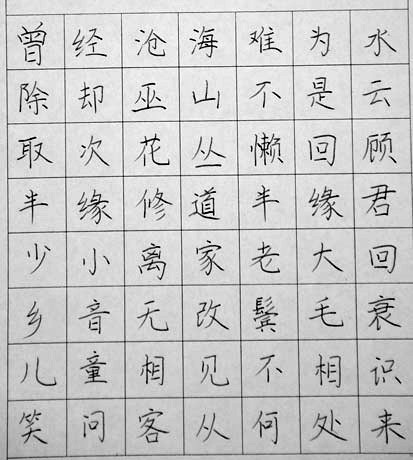 曾经沧海难为水
除却巫山不是云
取次花丛懒回顾
半缘修道半缘君
少小离家老大回
乡音无改鬓毛衰
儿童相见不相识
笑问客从何处来